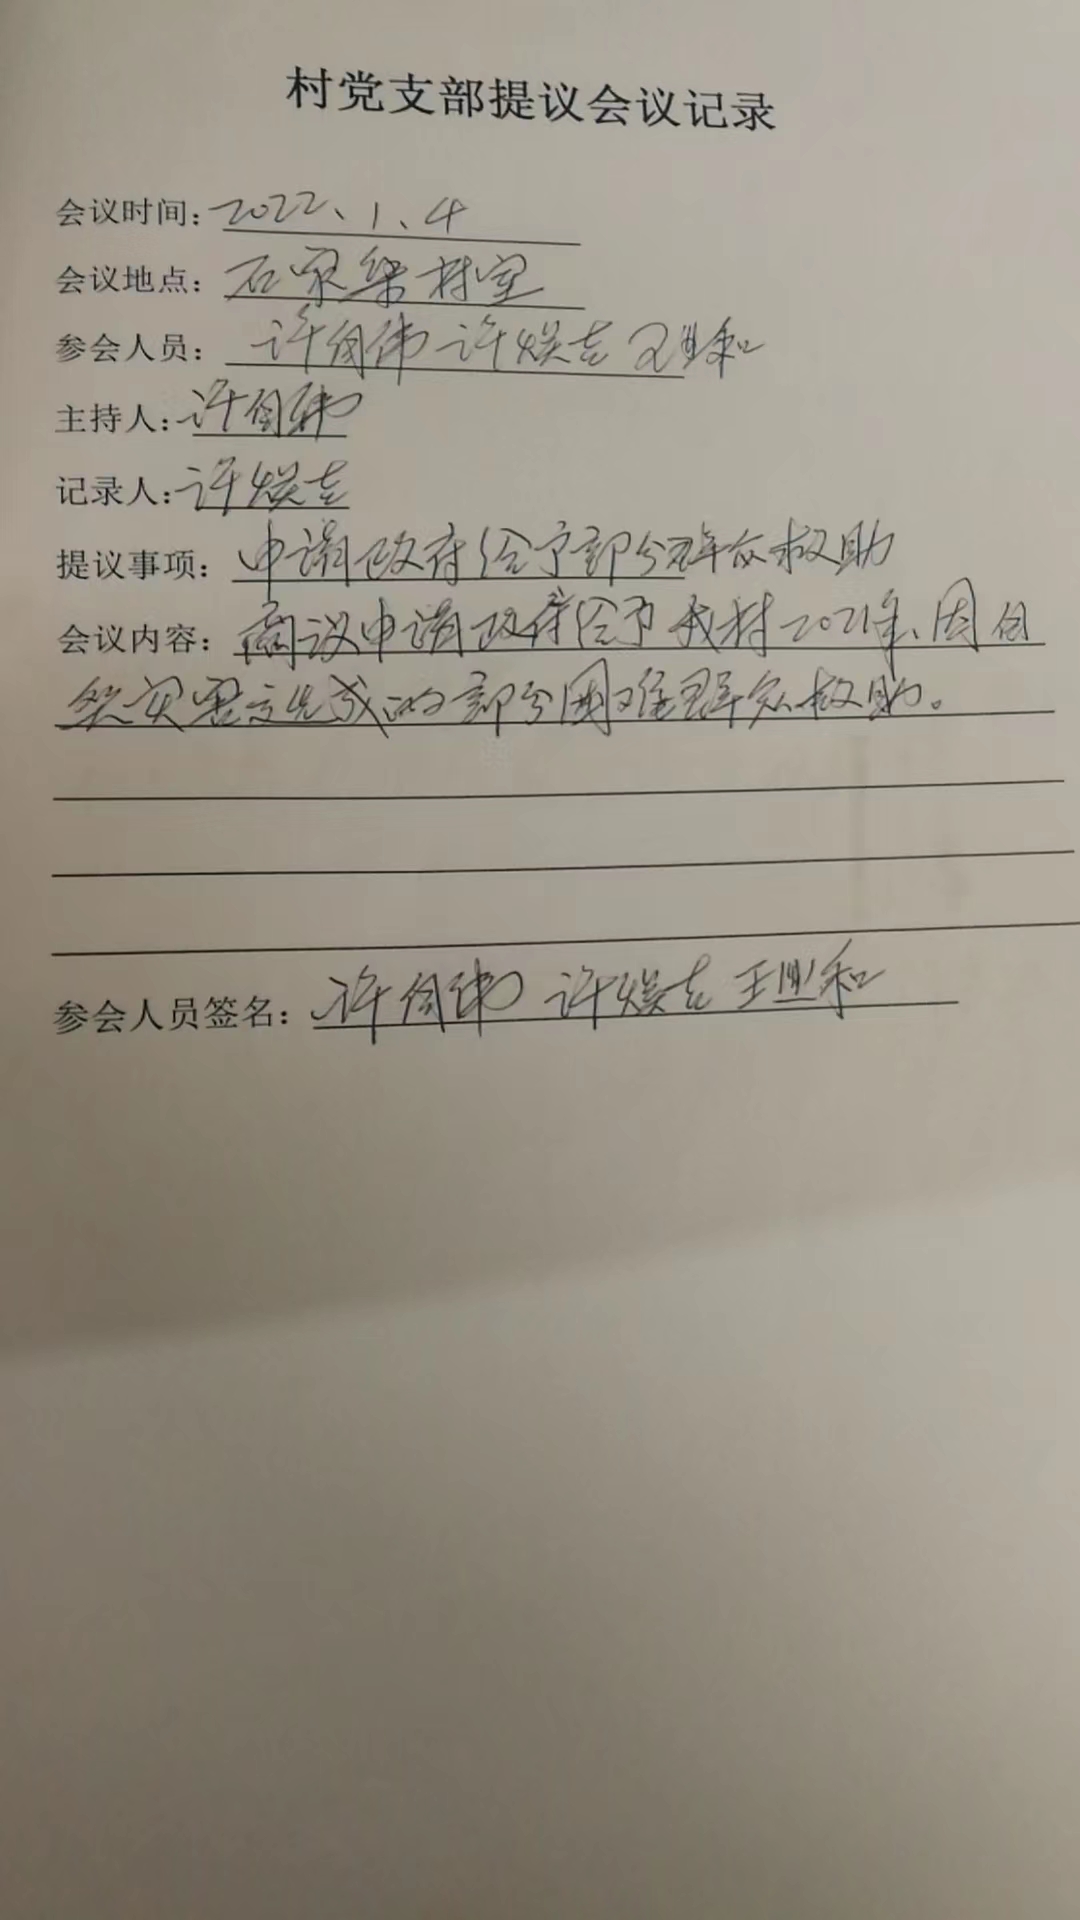 村党支部提议会议记录
会议时间：2022、1、4
会议地点：石家梁村室
参会人员：许自伟 许焕吉 王业和
主持人：许自伟
记录人：许焕吉
提议事项：申请政府给予部分群众救助
会议内容：商议申请政府给予我村2021年、因自
然灾害造成的部分困难群众救助。
参会人员签名：许自伟 许焕吉 王业和